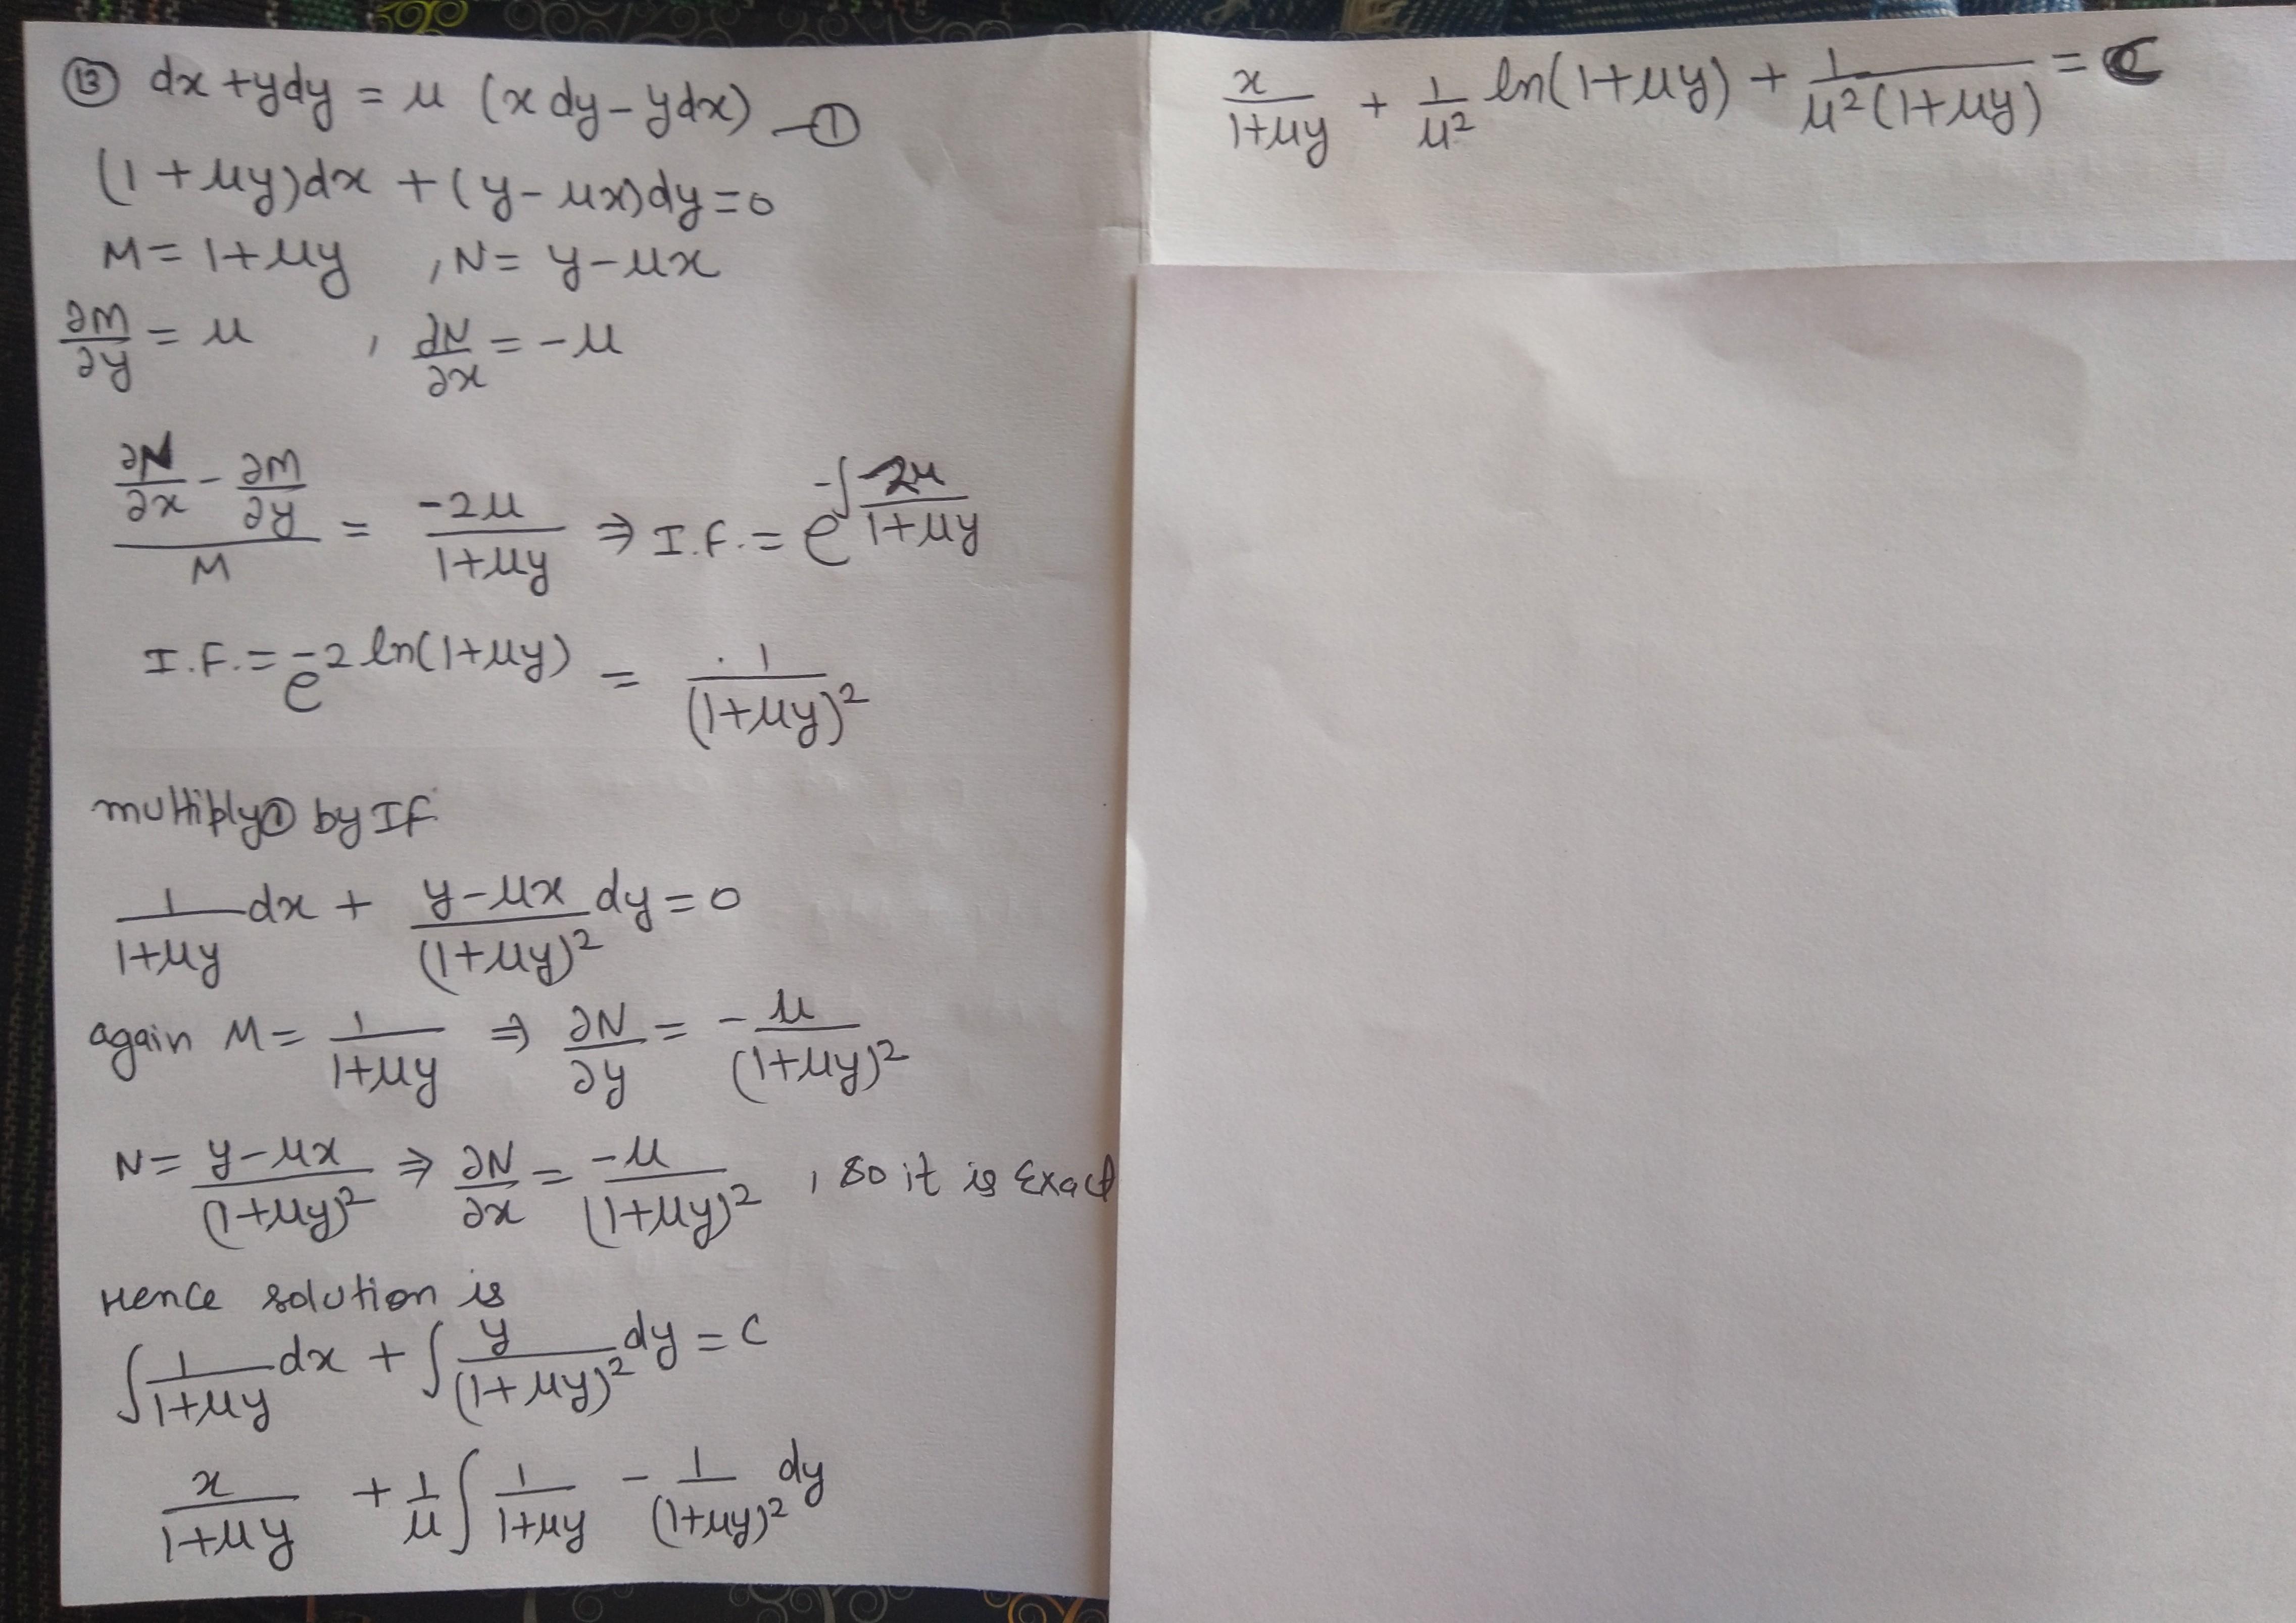 ⑬ dx + ydy = μ (x dy - ydx) —①
(1 + μy)dx + (y - μx)dy = 0
M = 1+μy , N = y - μx
∂M/∂y = μ , ∂N/∂x = -μ
(∂N/∂x - ∂M/∂y)/M = -2μ/(1+μy) ⇒ I.F. = e^(-∫ 2μ/(1+μy))
I.F. = e^(-2 ln(1+μy)) = 1/(1+μy)²
multiply ① by IF
1/(1+μy) dx + (y-μx)/(1+μy)² dy = 0
again M = 1/(1+μy) ⇒ ∂N/∂y = -μ/(1+μy)²
N = (y-μx)/(1+μy)² ⇒ ∂N/∂x = -μ/(1+μy)² , so it is Exact
Hence solution is
∫ 1/(1+μy) dx + ∫ y/(1+μy)² dy = c
x/(1+μy) + 1/μ ∫ 1/(1+μy) - 1/(1+μy)² dy
x/(1+μy) + 1/μ² ln(1+μy) + 1/(μ²(1+μy)) = C